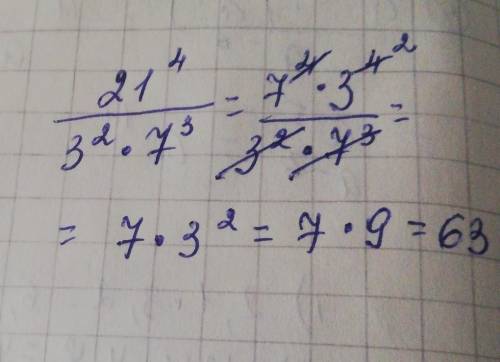 21⁴ / (3² · 7³) = 7⁴ · 3⁴ ² / (3² · 7³) =
= 7 · 3² = 7 · 9 = 63